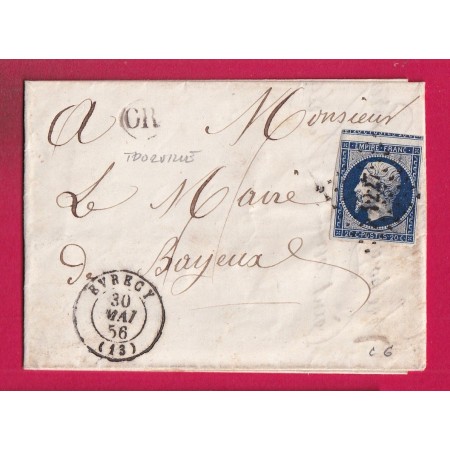 A CR Monsieur
TDORVILLE
Le Maire
de Bayeux
EMPIRE FRANC
20 C POSTES 20 C
EVRECY
30
MAI
56
(13)
C 6